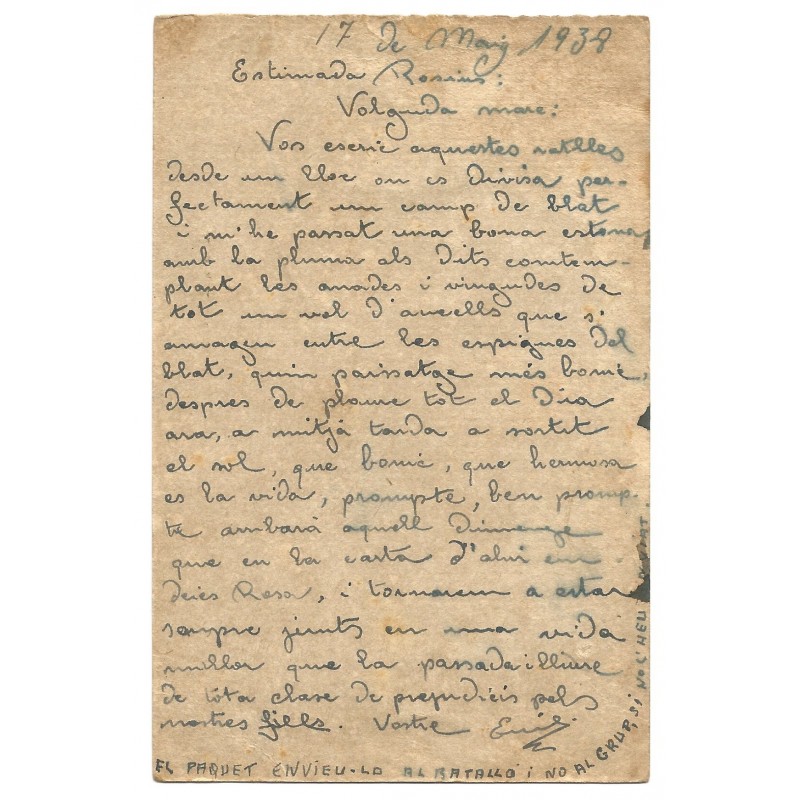 17 de Maig 1938
Estimada Rosius:
Volguda mare:
Vos escric aquestes ratlles
desde un lloc on es divisa per-
fectament un camp de blat
i m'he passat una bona estona
amb la pluma als dits contem-
plant les anades i vingudes de
tot un vol d'aucells que s'
amagen entre les espigues del
blat, quin paissatge més bonic,
despres de ploure tot el dia
ara, a mitjà tarda a sortit
el sol, que bonic, que hermosa
es la vida, prompte, ben promp-
te arribarà aquell diumenge
que en la carta d'ahir em
deies Rosa, i tornarem a estar
sempre junts en una vida
millor que la passada i lliure
de tota clase de prejudicis pels
nostres fills. Vostre
EL PAQUET ENVIEU-LO AL BATALLÓ i NO AL GRUP, SI NO L'HEU